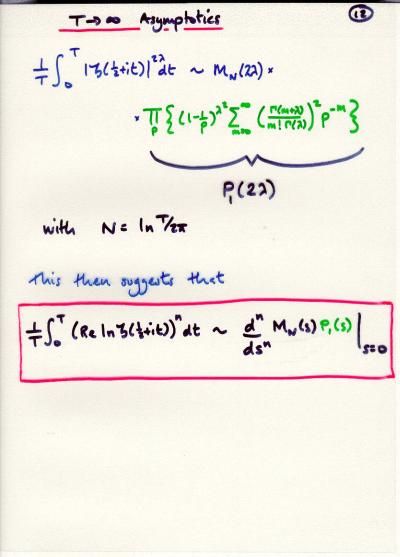 T→∞ Asymptotics
(12)
1/T ∫₀ᵀ |ζ(½+it)|^{2λ} dt ~ M_N(2λ) ×
× ∏_p { (1-1/p)^{λ²} Σ_{m=0}^∞ (Γ(m+λ)/(m! Γ(λ)))² p^{-m} }
P₁(2λ)
with N = ln T/2π
This then suggests that
1/T ∫₀ᵀ (Re ln ζ(½+it))ⁿ dt ~ dⁿ/dsⁿ M_N(s) P₁(s) |_{s=0}